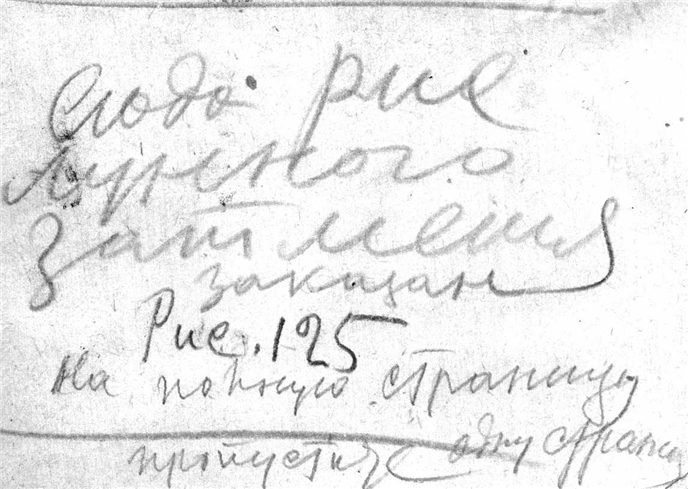 Сюда рис
лунного
затмения
заказан
Рис. 125
на полную страницу
пропустить одну страниц